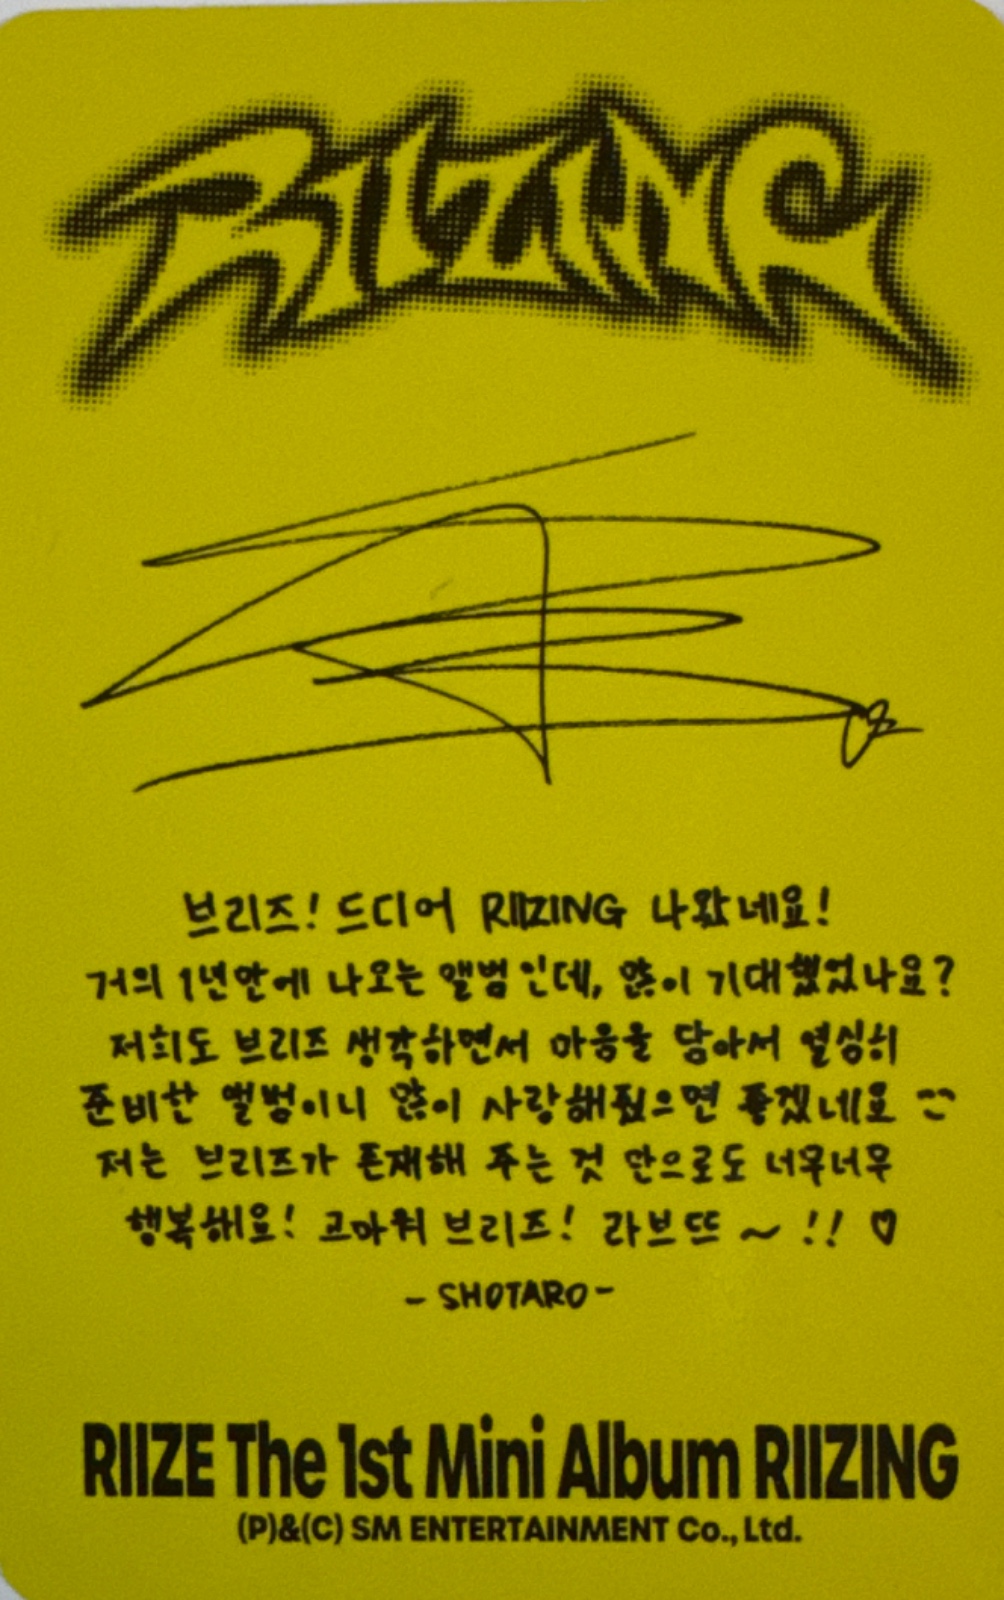 RIIZING
브리즈! 드디어 RIIZING 나왔네요!
거의 1년만에 나오는 앨범인데, 많이 기대했었나요?
저희도 브리즈 생각하면서 마음을 담아서 열심히
준비한 앨범이니 많이 사랑해줬으면 좋겠네요
저는 브리즈가 존재해 주는 것 만으로도 너무너무
행복해요! 고마워 브리즈! 라브뜨 ~ !! ♡
- SHOTARO -
RIIZE The 1st Mini Album RIIZING
(P)&(C) SM ENTERTAINMENT Co., Ltd.